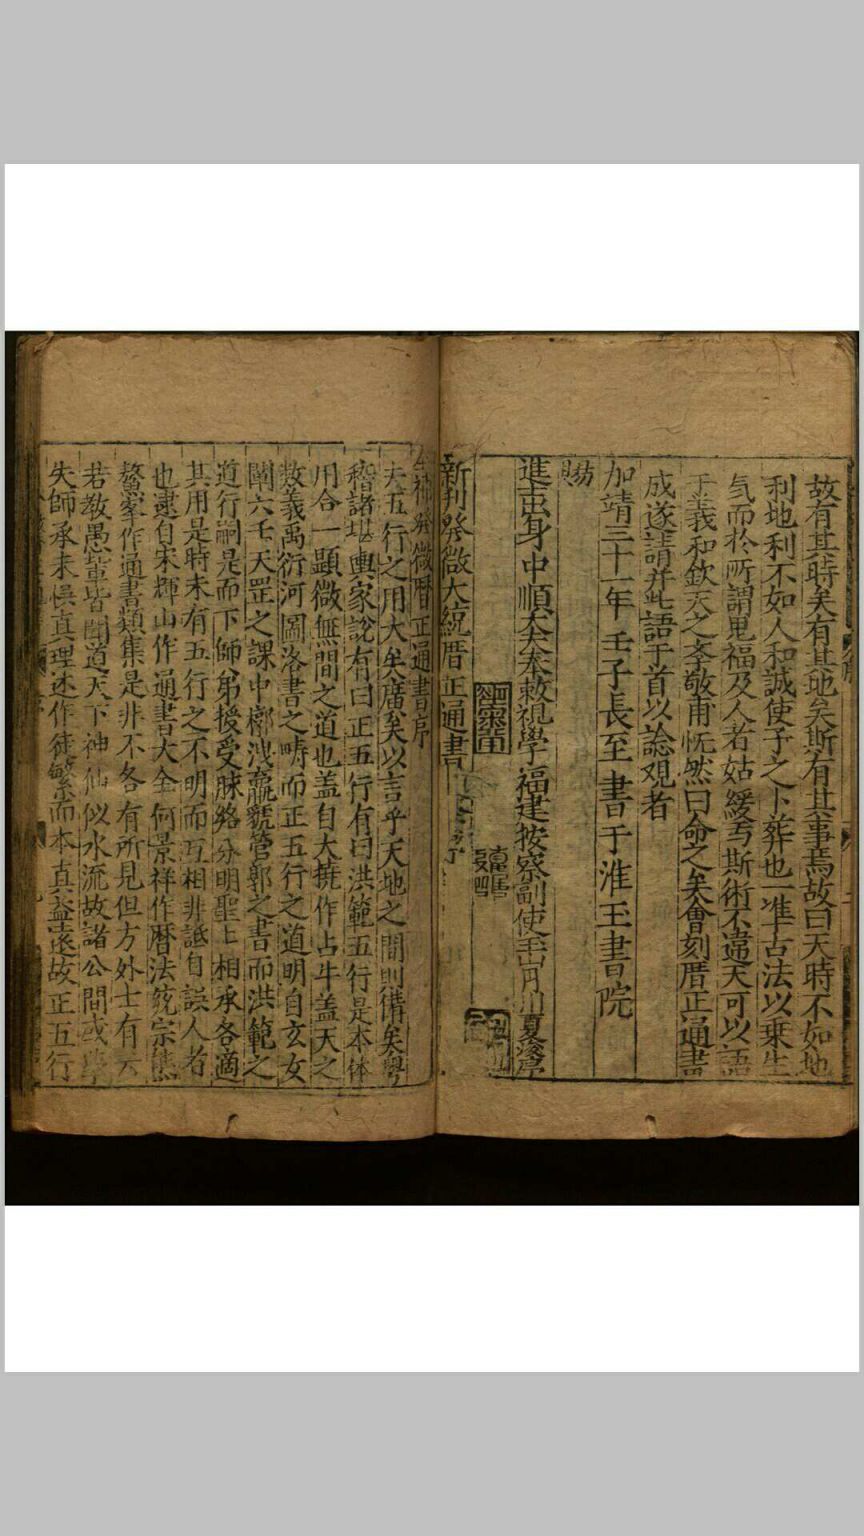 故有其時矣有其地矣斯有其事焉故曰天時不如地
利地利不如人和誠使予之卜葬也一準古法以乗生
氣而於所謂鬼福及人者姑緩焉斯術不違天可以語
于羲和欽天之李敬甫怃然曰命之矣會刻曆正通書
成遂請并此語于首以諗观者
加靖三十一年壬子長至書于淮王書院
賜
進士出身中順大夫奉敕視學福建按察副使玉山月川夏浚序
新刊發微大統曆正通書
神發微曆正通書序
夫五行之用大矣廣矣以言乎天地之間則備矣學
稽諸堪輿家說有曰正五行有曰洪範五行是本体
用合一顕微無間之道也盖自大撓作占斗盖天之
数義禹衍河圖洛書之疇而正五行之道明自玄女
闡六壬天罡之課中郭洩
營郭之書而洪範之
道行嗣是而下師弟授受脉絡分明聖上相承各適
其用是時未有五行之不明而互相非詆自誤人者
也逮自宋輝山作通書大全何景祥作曆法統宗熊
鰲峯作通書類集是非不各有所見但方外士有云
若教愚輩皆聞道天下神仙似水流故諸公間或
失師承未悞真理述作徒繁而本真益遠故正五行